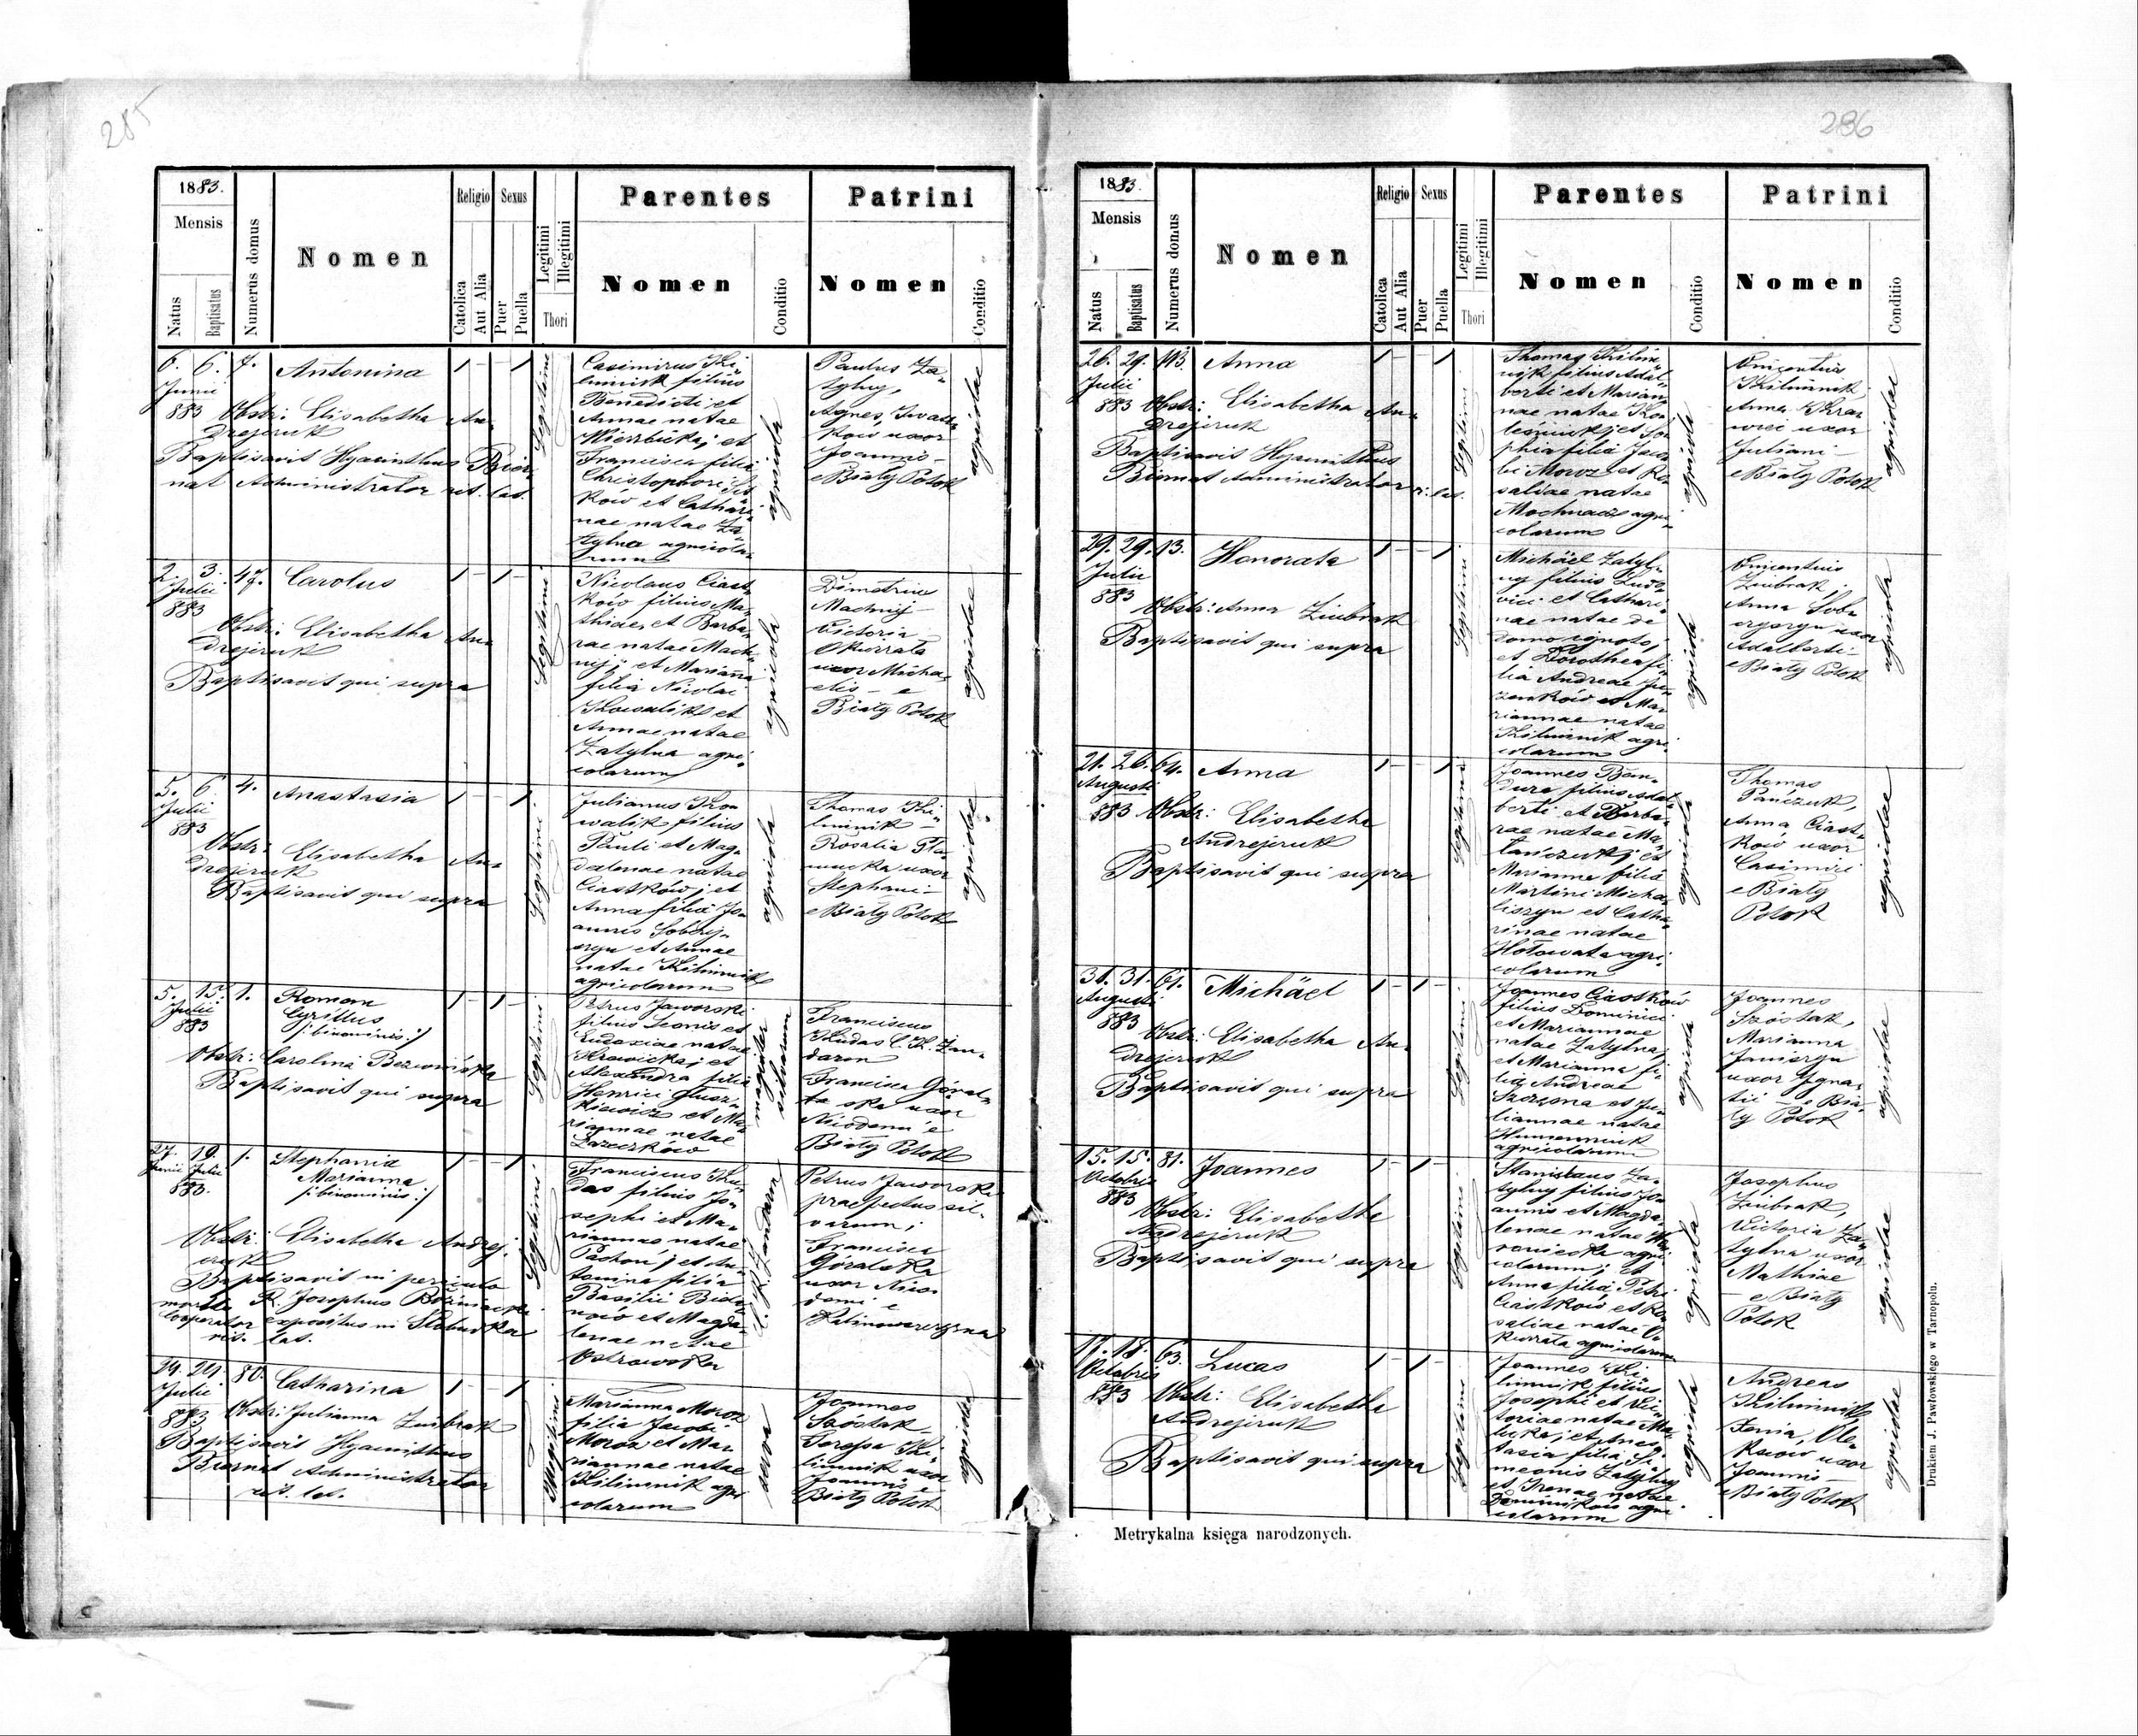 285
1883.
Mensis
Natus
Baptisatus
Numerus domus
Nomen
Religio
Catolica
Aut Alia
Sexus
Puer
Puella
Legitimi
Illegitimi
Thori
Parentes
Nomen
Conditio
Patrini
Nomen
Conditio
6. 6. 7. Antonina
Junii
883 Obstr: Elisabetha An-
drejciuk
Baptisavit Hyacinthus
nat Administrator rit. lat.
Legitimi
Casimirus Ki-
limnik filius
Benedicti et
Annae natae
et
Francisca filia
Christophori
ków et Cathari-
nae natae Za-
tylna agricola-
rum
agricola
Paulus Za-
tylny,
Agnes,
ków uxor
Joannis -
e Biały Potok
agricolae
2. 3. 47. Carolus
Julii
883
Obstr: Elisabetha An-
drejciuk
Baptisavit qui supra
Legitimi
Nicolaus Ciast-
ków filius Ma-
thiae et Barba-
rae natae Mach-
nij; et Marianna
filia Nicolai
Kowalik et
Annae natae
Zatylna agri-
colarum
agricola
Dimetrius
Machnij -
Victoria
uxor Micha-
elis - e
Biały Potok
agricolae
5. 6. 4. Anastasia
Julii
883
Obstr: Elisabetha An-
drejciuk
Baptisavit qui supra
Legitimi
Julianus Ko-
walik filius
Pauli et Mag-
dalenae natae
Ciastków; et
Anna filia Jo-
annis Sobej-
et Annae
natae Kilimnik
agricolarum
agricola
Thomas Ki-
limnik -
Rosalia
uxor
Stephani -
e Biały Potok
agricolae
5. 15. 1. Roman
Julii Cyrillus
883 /: binominis :/
Obstr: Carolina
Baptisavit qui supra
Legitimi
Petrus Jaworski
filius Leonis et
Eudoxiae natae
et
Alexandra filia
Henrici
et Ma-
riannae natae
magister silvarum
Franciscus
Kudas C. K. Żan-
darm
Francisca Góral-
ska uxor
Nicodemi e
Biały Potok
27. 19. 1. Stephania
Junii Julii Marianna
883. /: binominis :/
Obstr: Elisabetha Andrej-
ciuk
Baptisavit in periculo
mortis R. Josephus
Cooperator expositus in Słobudka
rit. lat.
Legitimi
Franciscus Ku-
das filius Jo-
sephi et Ma-
riannae natae
et An-
tonina filia
Basilii
et Magda-
lenae natae
Ostrowska
C. K. Żandarm
Petrus Jaworski
praefectus sil-
varum;
Francisca
Góralska
uxor Nico-
demi e
24. 29. 80. Catharina
Julii
883 Obstr: Julianna Ziubrak
Baptisavit Hyacinthus
Administrator
rit. lat.
Illegitimi
Marianna Moroz
filia Jacobi
Moroz et Ma-
riannae natae
Kilimnik agri-
colarum
serva
Joannes
Szóstak -
Teressa Ki-
limnik uxor
Joannis e
Biały Potok
agricolae
286
1883.
Mensis
Natus
Baptisatus
Numerus domus
Nomen
Religio
Catolica
Aut Alia
Sexus
Puer
Puella
Legitimi
Illegitimi
Thori
Parentes
Nomen
Conditio
Patrini
Nomen
Conditio
26. 29. 113. Anna
Julii
883 Obstr: Elisabetha An-
drejciuk
Baptisavit Hyacinthus
Administrator r. lat.
Legitimi
Thomas Kilim-
nik filius Adal-
berti et Marian-
nae natae
et So-
phia filia Jaco-
bi Moroz et Ro-
saliae natae
agri-
colarum
agricola
Vincentius
Kilimnik
Anna
uxor
Juliani -
e Biały Potok
agricolae
29. 29. 13. Honorata
Julii
883
Obstr: Anna Ziubrak
Baptisavit qui supra
Legitimi
Michael Zatyl-
ny filius Ludo-
vici et Cathari-
nae natae de
domo ignoto;
et Dorothea fi-
lia Andreae
et Ma-
riannae natae
Kilimnik agri-
colarum
agricola
Vincentius
Ziubrak;
Anna
uxor
Adalberti -
e Biały Potok
agricolae
21. 26. 64. Anna
Augusti
883 Obstr: Elisabetha
Andrejciuk
Baptisavit qui supra
Legitimi
Joannes Ban-
dura filius Adal-
berti et Barba-
rae natae
et
Marianna filia
Martini Micha-
liszyn et Catha-
rinae natae
Hołowata agri-
colarum
agricola
Thomas
Panczuk,
Anna Ciast-
ków uxor
Casimiri
e Biały
Potok
agricolae
31. 31. 61. Michäel
Augusti
883
Obstr: Elisabetha An-
drejciuk
Baptisavit qui supra
Legitimi
Joannes Ciastków
filius Dominici
et Mariannae
natae Zatylna,
et Marianna fi-
lia Andreae
et Ju-
liannae natae
agricolarum
agricola
Joannes
Szóstak,
Marianna
uxor Igna-
tii - e Bia-
ły Potok
agricolae
15. 15. 81. Joannes
Octobris
883
Obstr: Elisabetha
Andrejciuk
Baptisavit qui supra
Legitimi
Stanislaus Za-
tylny filius Jo-
annis et Magda-
lenae natae
agri-
colarum; et
Anna filia Petri
Ciastków et Ro-
saliae natae
agricolarum
agricola
Josephus
Ziubrak,
Victoria Za-
tylna uxor
Mathiae
- e Biały
Potok
agricolae
17. 18. 63. Lucas
Octobris
883 Obstr: Elisabetha
Andrejciuk
Baptisavit qui supra
Legitimi
Joannes Ki-
limnik filius
Josephi et Vic-
toriae natae
et Anas-
tasia filia Si-
meonis Zatylny
et Irenae natae
agri-
colarum
agricola
Andreas
Kilimnik
uxor
Joannis -
e Biały Potok
agricolae
Metrykalna księga narodzonych.
Drukiem J. Pawłowskiego w Tarnopolu.